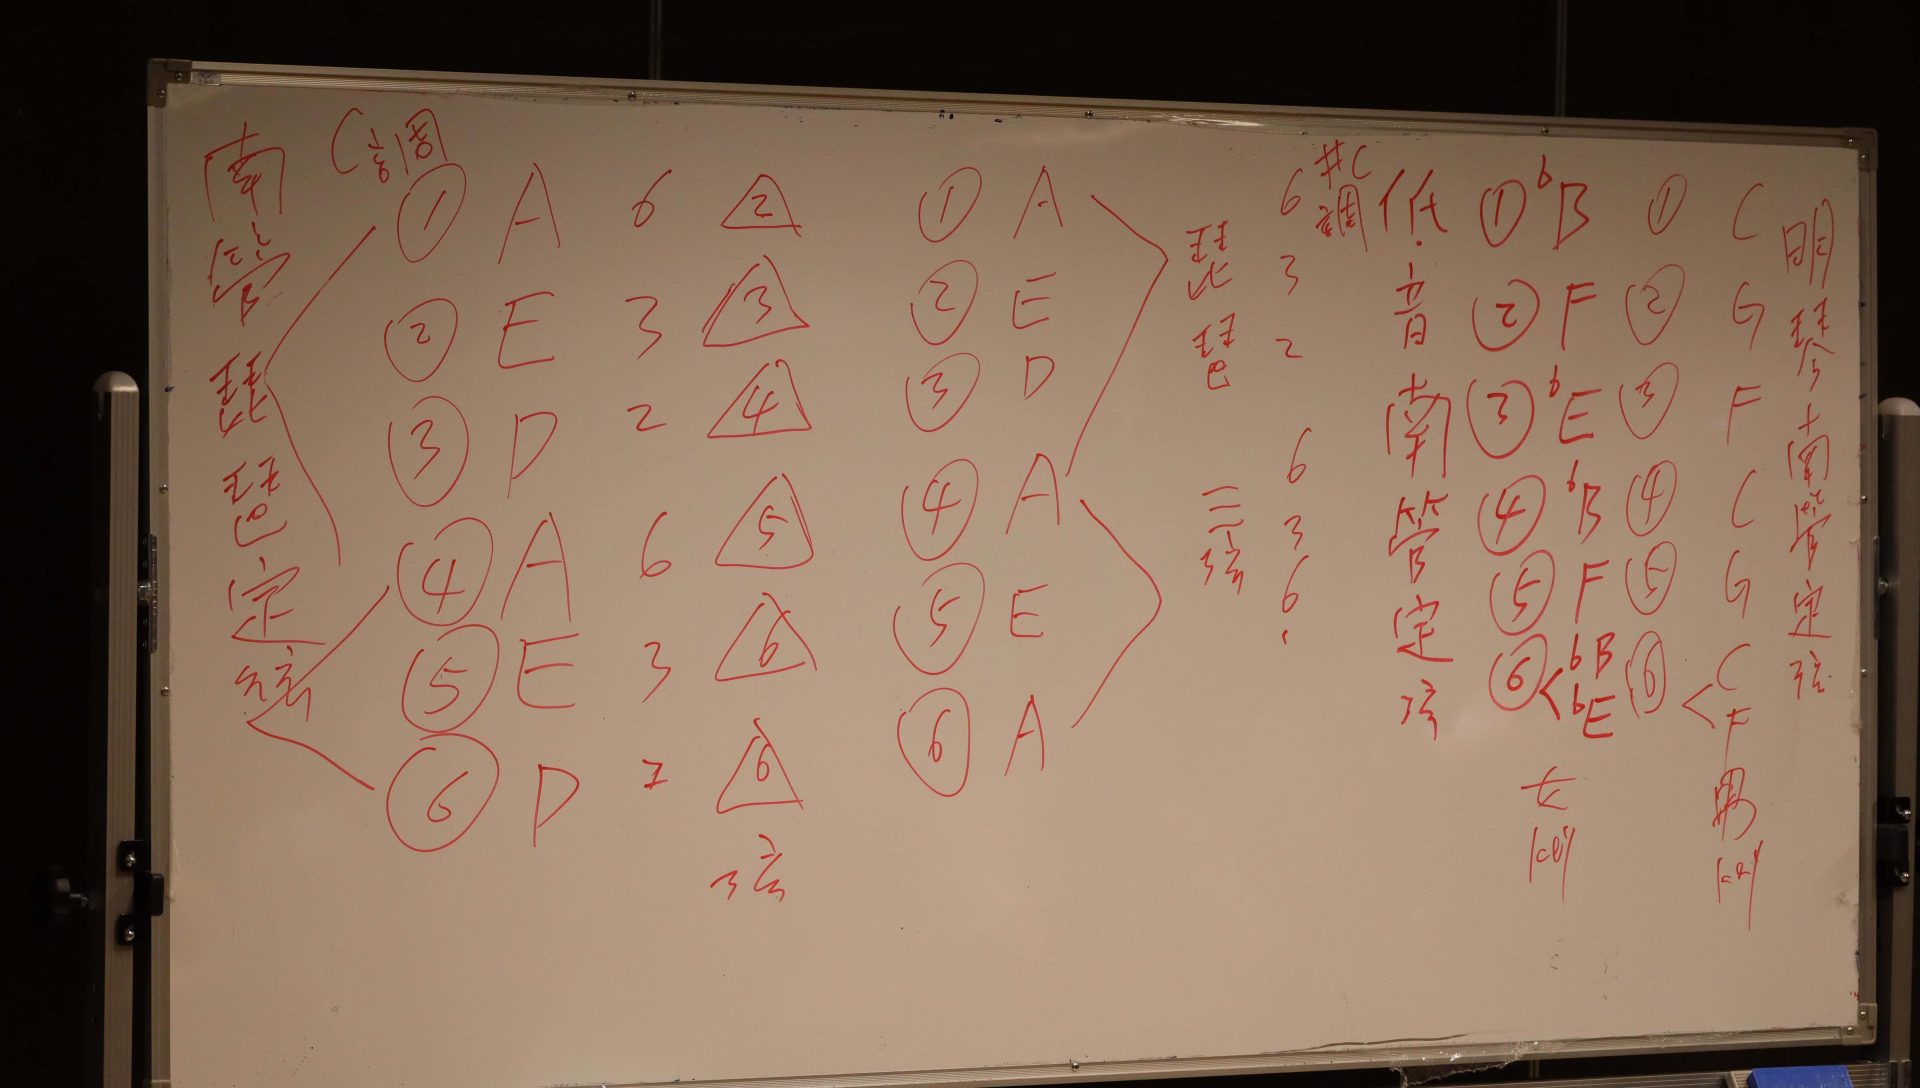 南管琵琶定弦
C調
① A 6 2
② E 3 3
③ D 2 4
④ A 6 5
⑤ E 3 6
⑥ D 2 6
弦
① A
② E
③ D
④ A
⑤ E
⑥ A
琵琶
三弦
6
3
2
6
3
6
#C調
低音南管定弦
① bB
② F
③ bE
④ bB
⑤ F
⑥ < bB bE
女key
① C
② G
③ F
④ C
⑤ G
⑥ < C F
男key
明琴南管定弦